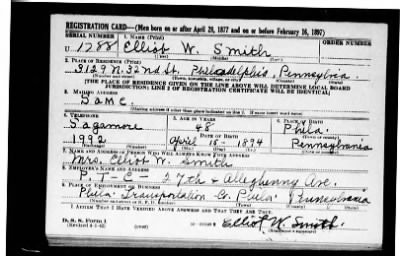 REGISTRATION CARD—(Men born on or after April 28, 1877 and on or before February 16, 1897)
SERIAL NUMBER 1. NAME (Print) ORDER NUMBER
U 1288 Elliot W. Smith
(First) (Middle) (Last)
2. PLACE OF RESIDENCE (Print)
3129 N. 32nd St. Philadelphia, Pennsylvia.
(Number and street) (Town, township, village, or city) (County) (State)
[THE PLACE OF RESIDENCE GIVEN ON THE LINE ABOVE WILL DETERMINE LOCAL BOARD
JURISDICTION; LINE 2 OF REGISTRATION CERTIFICATE WILL BE IDENTICAL]
3. MAILING ADDRESS
Same.
[Mailing address if other than place indicated on line 2. If same insert word same]
4. TELEPHONE 5. AGE IN YEARS 6. PLACE OF BIRTH
Sagamore 48 Phila.
DATE OF BIRTH (Town or county)
1992 April 15 - 1894 Pennsylvania
(Exchange) (Number) (Mo.) (Day) (Yr.) (State or country)
7. NAME AND ADDRESS OF PERSON WHO WILL ALWAYS KNOW YOUR ADDRESS
Mrs. Elliot W. Smith
8. EMPLOYER'S NAME AND ADDRESS
P.-T-C- 27th & Alleghenny Ave.
9. PLACE OF EMPLOYMENT OR BUSINESS
Phila. Transportation Co. Phila. Pennsylvania
(Number and street or R. F. D. number) (Town) (County) (State)
I AFFIRM THAT I HAVE VERIFIED ABOVE ANSWERS AND THAT THEY ARE TRUE.
D. S. S. Form 1
Elliot W. Smith.